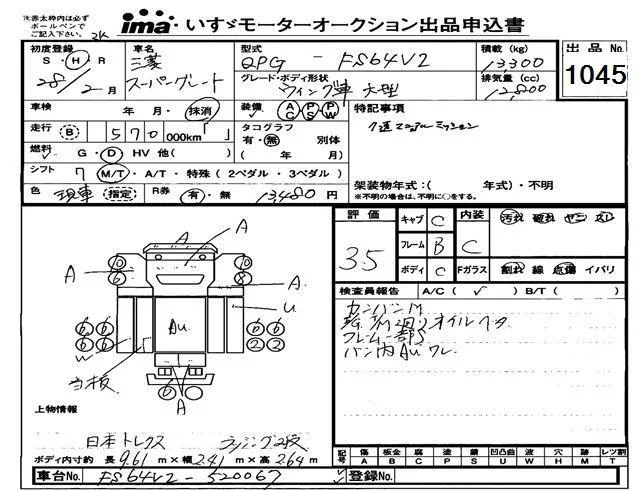 ※赤太枠内は必ず
ボールペンで
ご記入下さい。
ima いすゞモーターオークション出品申込書
初度登録
S・H・R
28/2月
車名
三菱
スーパーグレート
型式
QPG - FS64V2
グレード・ボディ形状
ウィング車 大型
積載 (kg)
13300
排気量 (cc)
12800
出品No.
1045
車検 年 月・抹消
装備 AC PS PW
特記事項
7速マニュアルミッション
走行 B 570 000km
タコグラフ
有・無 別体
( 年 月)
燃料 G・D HV 他( )
シフト 7 M/T・A/T・特殊(2ペダル・3ペダル)
架装物年式:( 年式)・不明
※不明の場合は、不明に○をする。
色 現車 指定 R券 有・無 13,480 円
評価
3.5
キャブ C
フレーム B
ボディ C
内装 C
汚れ 破れ ヤニ スレ
Fガラス 割れ 線 点傷 イバリ
検査員報告 A/C ( ✓ ) B/T ( )
カンバンM
オイル
フレーム一部S
バン内AU ワレ
A A A A A A
U
W
Au
当板
10 6 10 8
6 6 6 6
6 6 2 2
6
上物情報
日本トレクス
ボディ内寸約 長 9.61 m×幅 2.41 m×高 2.64 m
記号 傷 A 板金 B 腐 C 塗 P 錆 S 凹凸曲 U 波 W 穴 H 跡 M レツ割 T
車台No. FS64V2-520067
登録No.